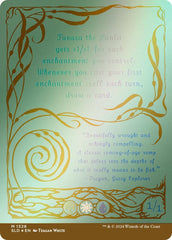 Tuvasa the Sunlit
gets +1/+1 for each
enchantment you control.
Whenever you cast your first
enchantment spell each turn,
draw a card.
"Beautifully wrought and
achingly compelling.
A classic coming-of-age romp
that delves into the depths of
what it really means to be fish."
1/1
M 1328
SLD ★ EN TEAGAN WHITE
™ & © 2024 Wizards of the Coast